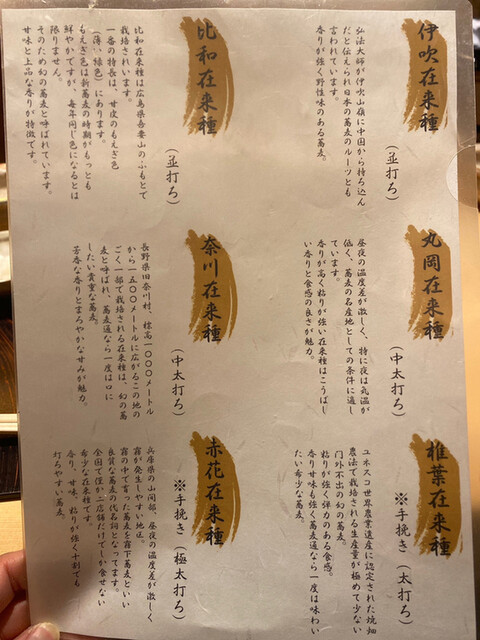 伊吹在来種
(並打ち)
弘法大師が伊吹山嶺に中国から持ち込ん
だと伝えられ日本の蕎麦のルーツとも
言われています。
香りが強く野性味のある蕎麦。
丸岡在来種
(中太打ち)
昼夜の温度差が激しく、特に夜は気温が
低く、蕎麦の名産地としての条件に適し
ています。
香りが高く粘りが強い在来種はこうばし
い香りと食感の良さが魅力。
椎葉在来種
※手挽き(太打ち)
ユネスコ世界農業遺産に認定された焼畑
農法で栽培される生産量が極めて少ない
門外不出の幻の蕎麦。
粘りが強く弾力のある食感。
香り甘味も強く蕎麦通なら一度は味わい
たい希少な蕎麦。
比和在来種
(並打ち)
比和在来種は広島県吾妻山のふもとで
栽培されいます。
一番の特長は、甘皮のもえぎ色
(薄い緑色)にあります。
もえぎ色は新蕎麦の時期がもっとも
鮮やかですが、毎年同じ色になるとは
限りません。
そのため幻の蕎麦と呼ばれています。
甘味と上品な香りが特徴です。
奈川在来種
(中太打ち)
長野県旧奈川村、標高一〇〇〇メートル
から一五〇〇メートルに広がるこの地の
ごく一部で栽培される在来種は、幻の蕎
麦と呼ばれ、蕎麦通なら一度は口に
したい貴重な蕎麦。
芳香な香りとまろやかな甘みが魅力。
赤花在来種
※手挽き(極太打ち)
兵庫県の山間部、昼夜の温度差が激しく
霧が発生しやすい地区。
霧の中で育った蕎麦を霧下蕎麦といい
良質な蕎麦の代名詞となってます。
全国で僅か二店舗だけでしか食せない
希少な在来種です。
香り、甘味、粘りが強く十割でも
打ちやすい蕎麦。